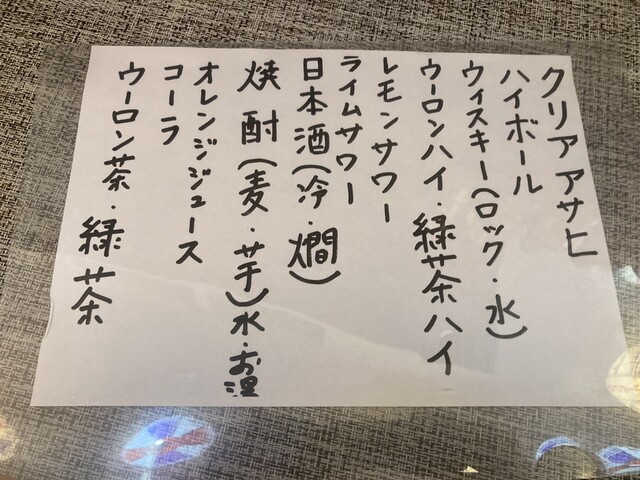 クリアアサヒ
ハイボール
ウィスキー(ロック・水)
ウーロンハイ・緑茶ハイ
レモンサワー
ライムサワー
日本酒(冷・燗)
焼酎(麦・芋)水・お湯
オレンジジュース
コーラ
ウーロン茶・緑茶